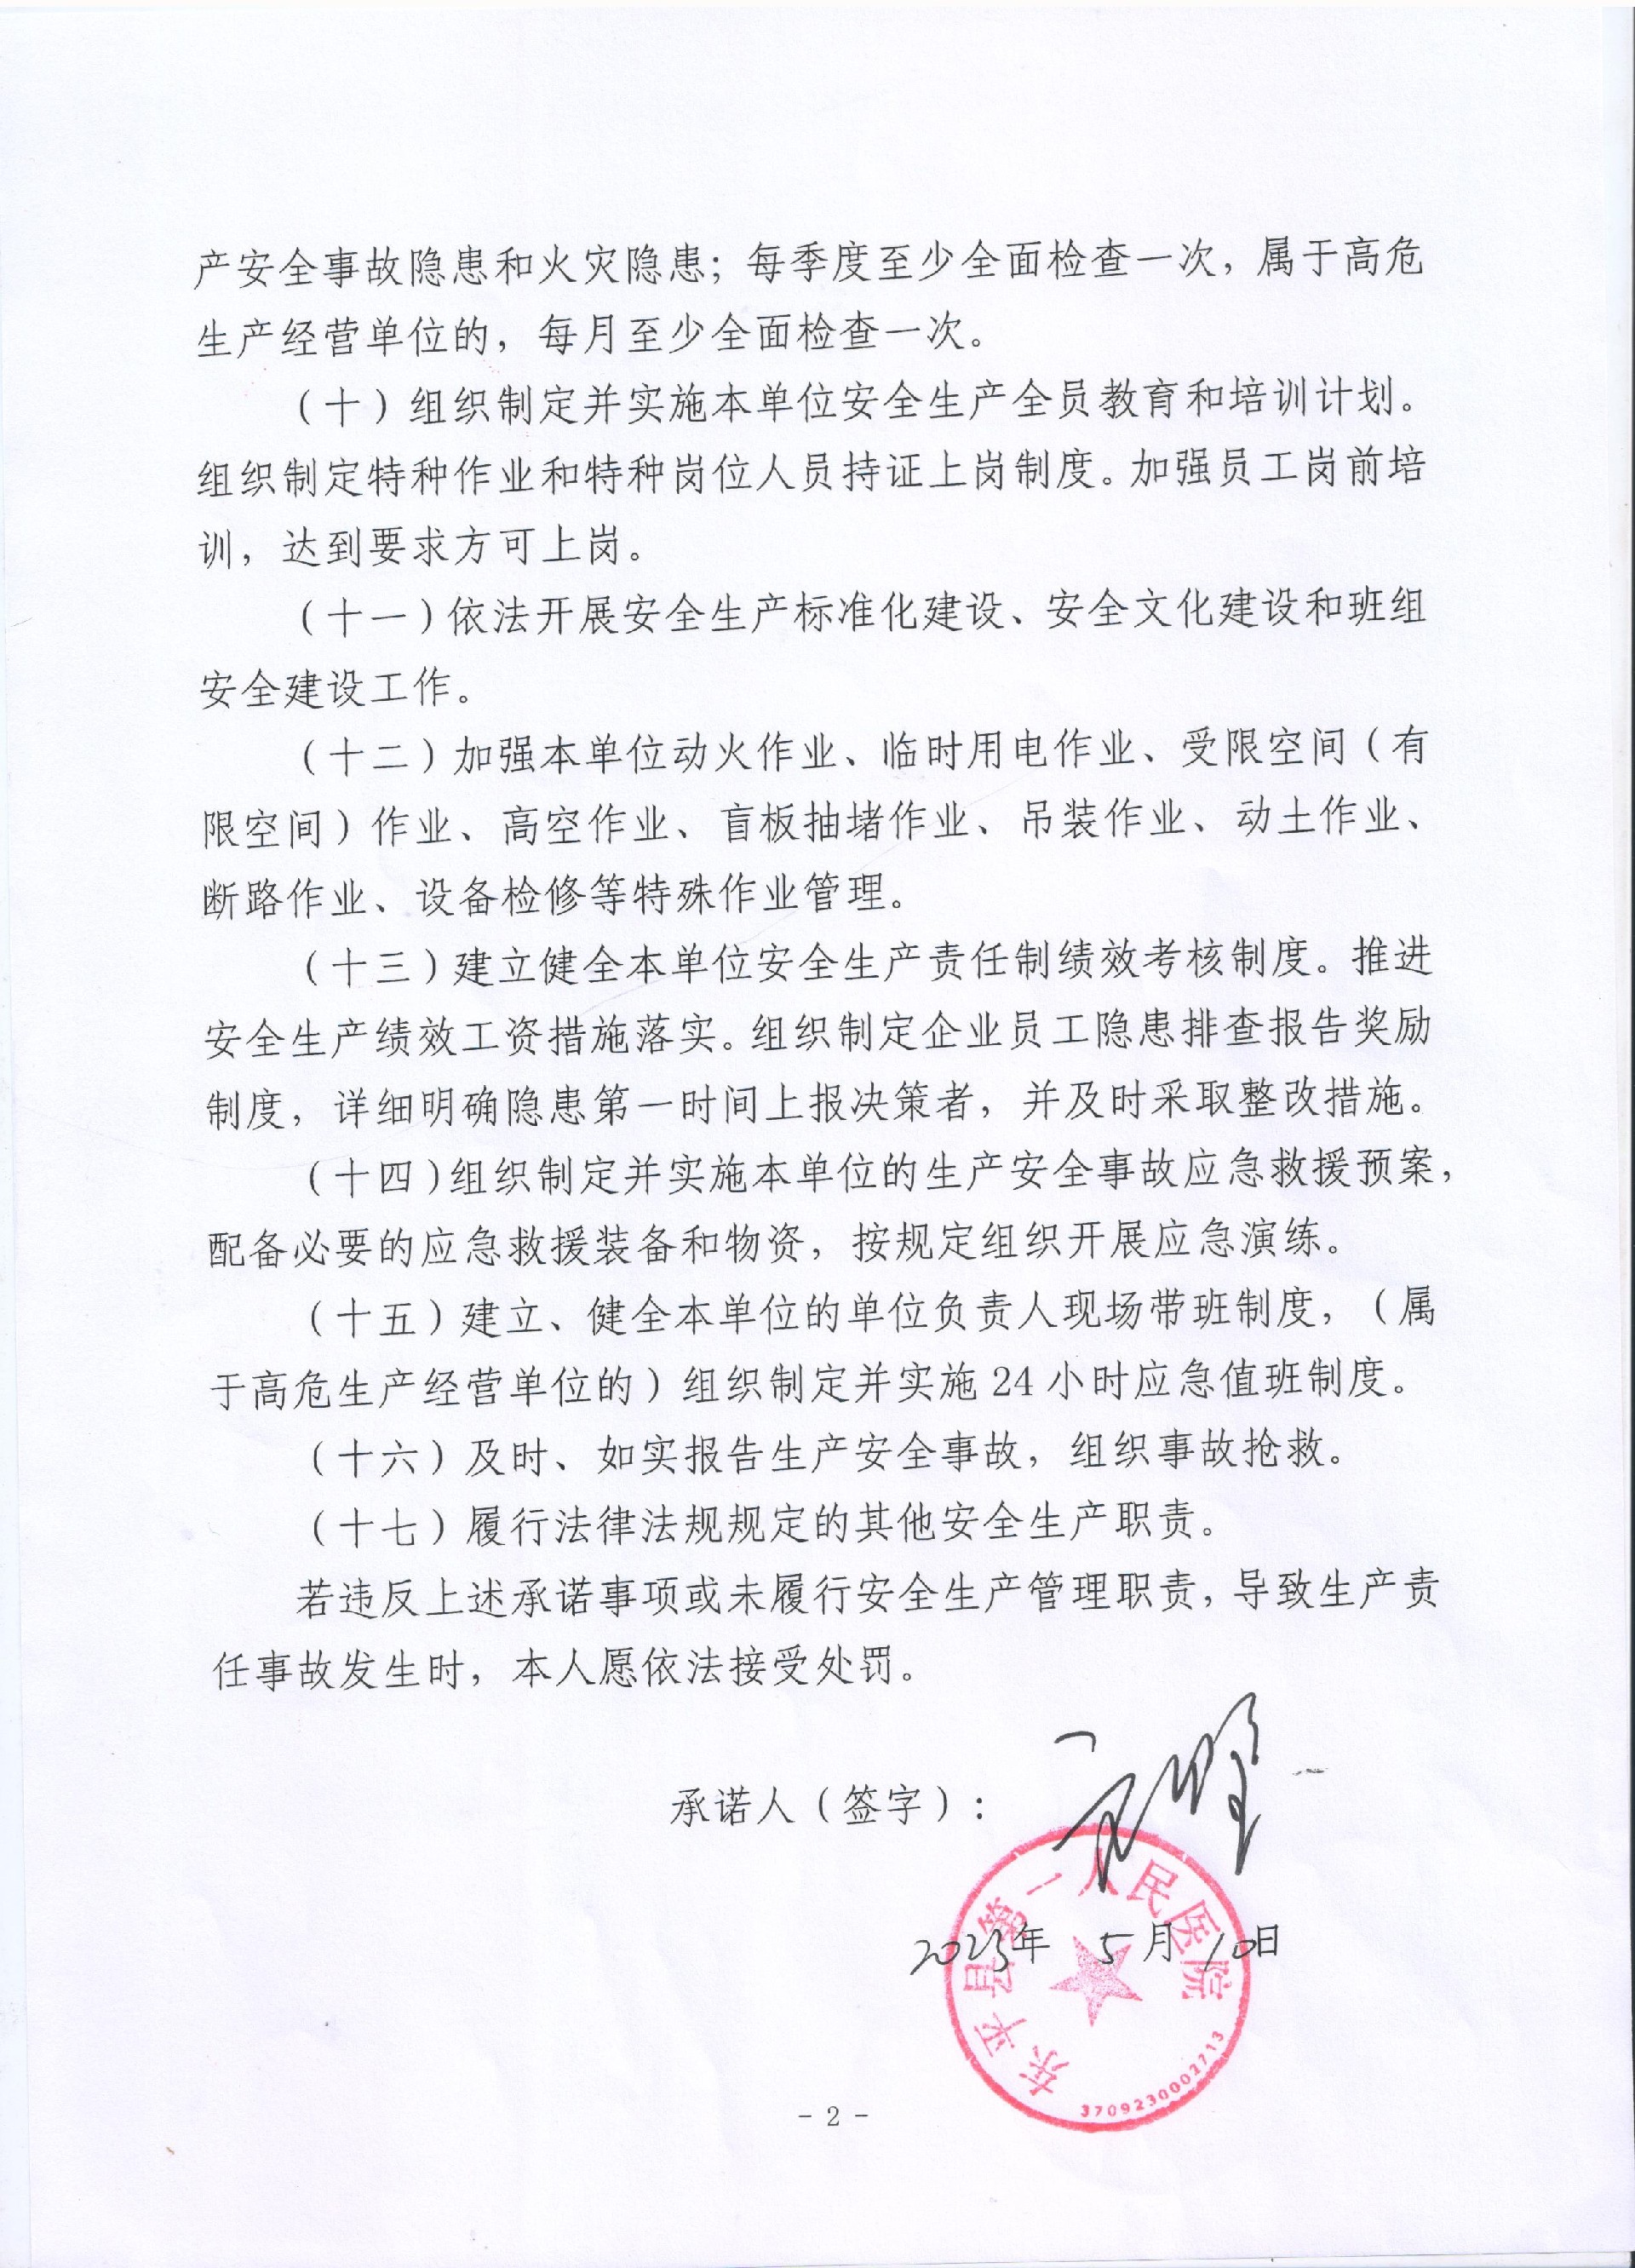 产安全事故隐患和火灾隐患；每季度至少全面检查一次，属于高危
生产经营单位的，每月至少全面检查一次。
（十）组织制定并实施本单位安全生产全员教育和培训计划。
组织制定特种作业和特种岗位人员持证上岗制度。加强员工岗前培
训，达到要求方可上岗。
（十一）依法开展安全生产标准化建设、安全文化建设和班组
安全建设工作。
（十二）加强本单位动火作业、临时用电作业、受限空间（有
限空间）作业、高空作业、盲板抽堵作业、吊装作业、动土作业、
断路作业、设备检修等特殊作业管理。
（十三）建立健全本单位安全生产责任制绩效考核制度。推进
安全生产绩效工资措施落实。组织制定企业员工隐患排查报告奖励
制度，详细明确隐患第一时间上报决策者，并及时采取整改措施。
（十四）组织制定并实施本单位的生产安全事故应急救援预案，
配备必要的应急救援装备和物资，按规定组织开展应急演练。
（十五）建立、健全本单位的单位负责人现场带班制度，（属
于高危生产经营单位的）组织制定并实施24小时应急值班制度。
（十六）及时、如实报告生产安全事故，组织事故抢救。
（十七）履行法律法规规定的其他安全生产职责。
若违反上述承诺事项或未履行安全生产管理职责，导致生产责
任事故发生时，本人愿依法接受处罚。
承诺人（签字）：
东平县第一人民医院
2023年 5月10日
3709230002713
- 2 -